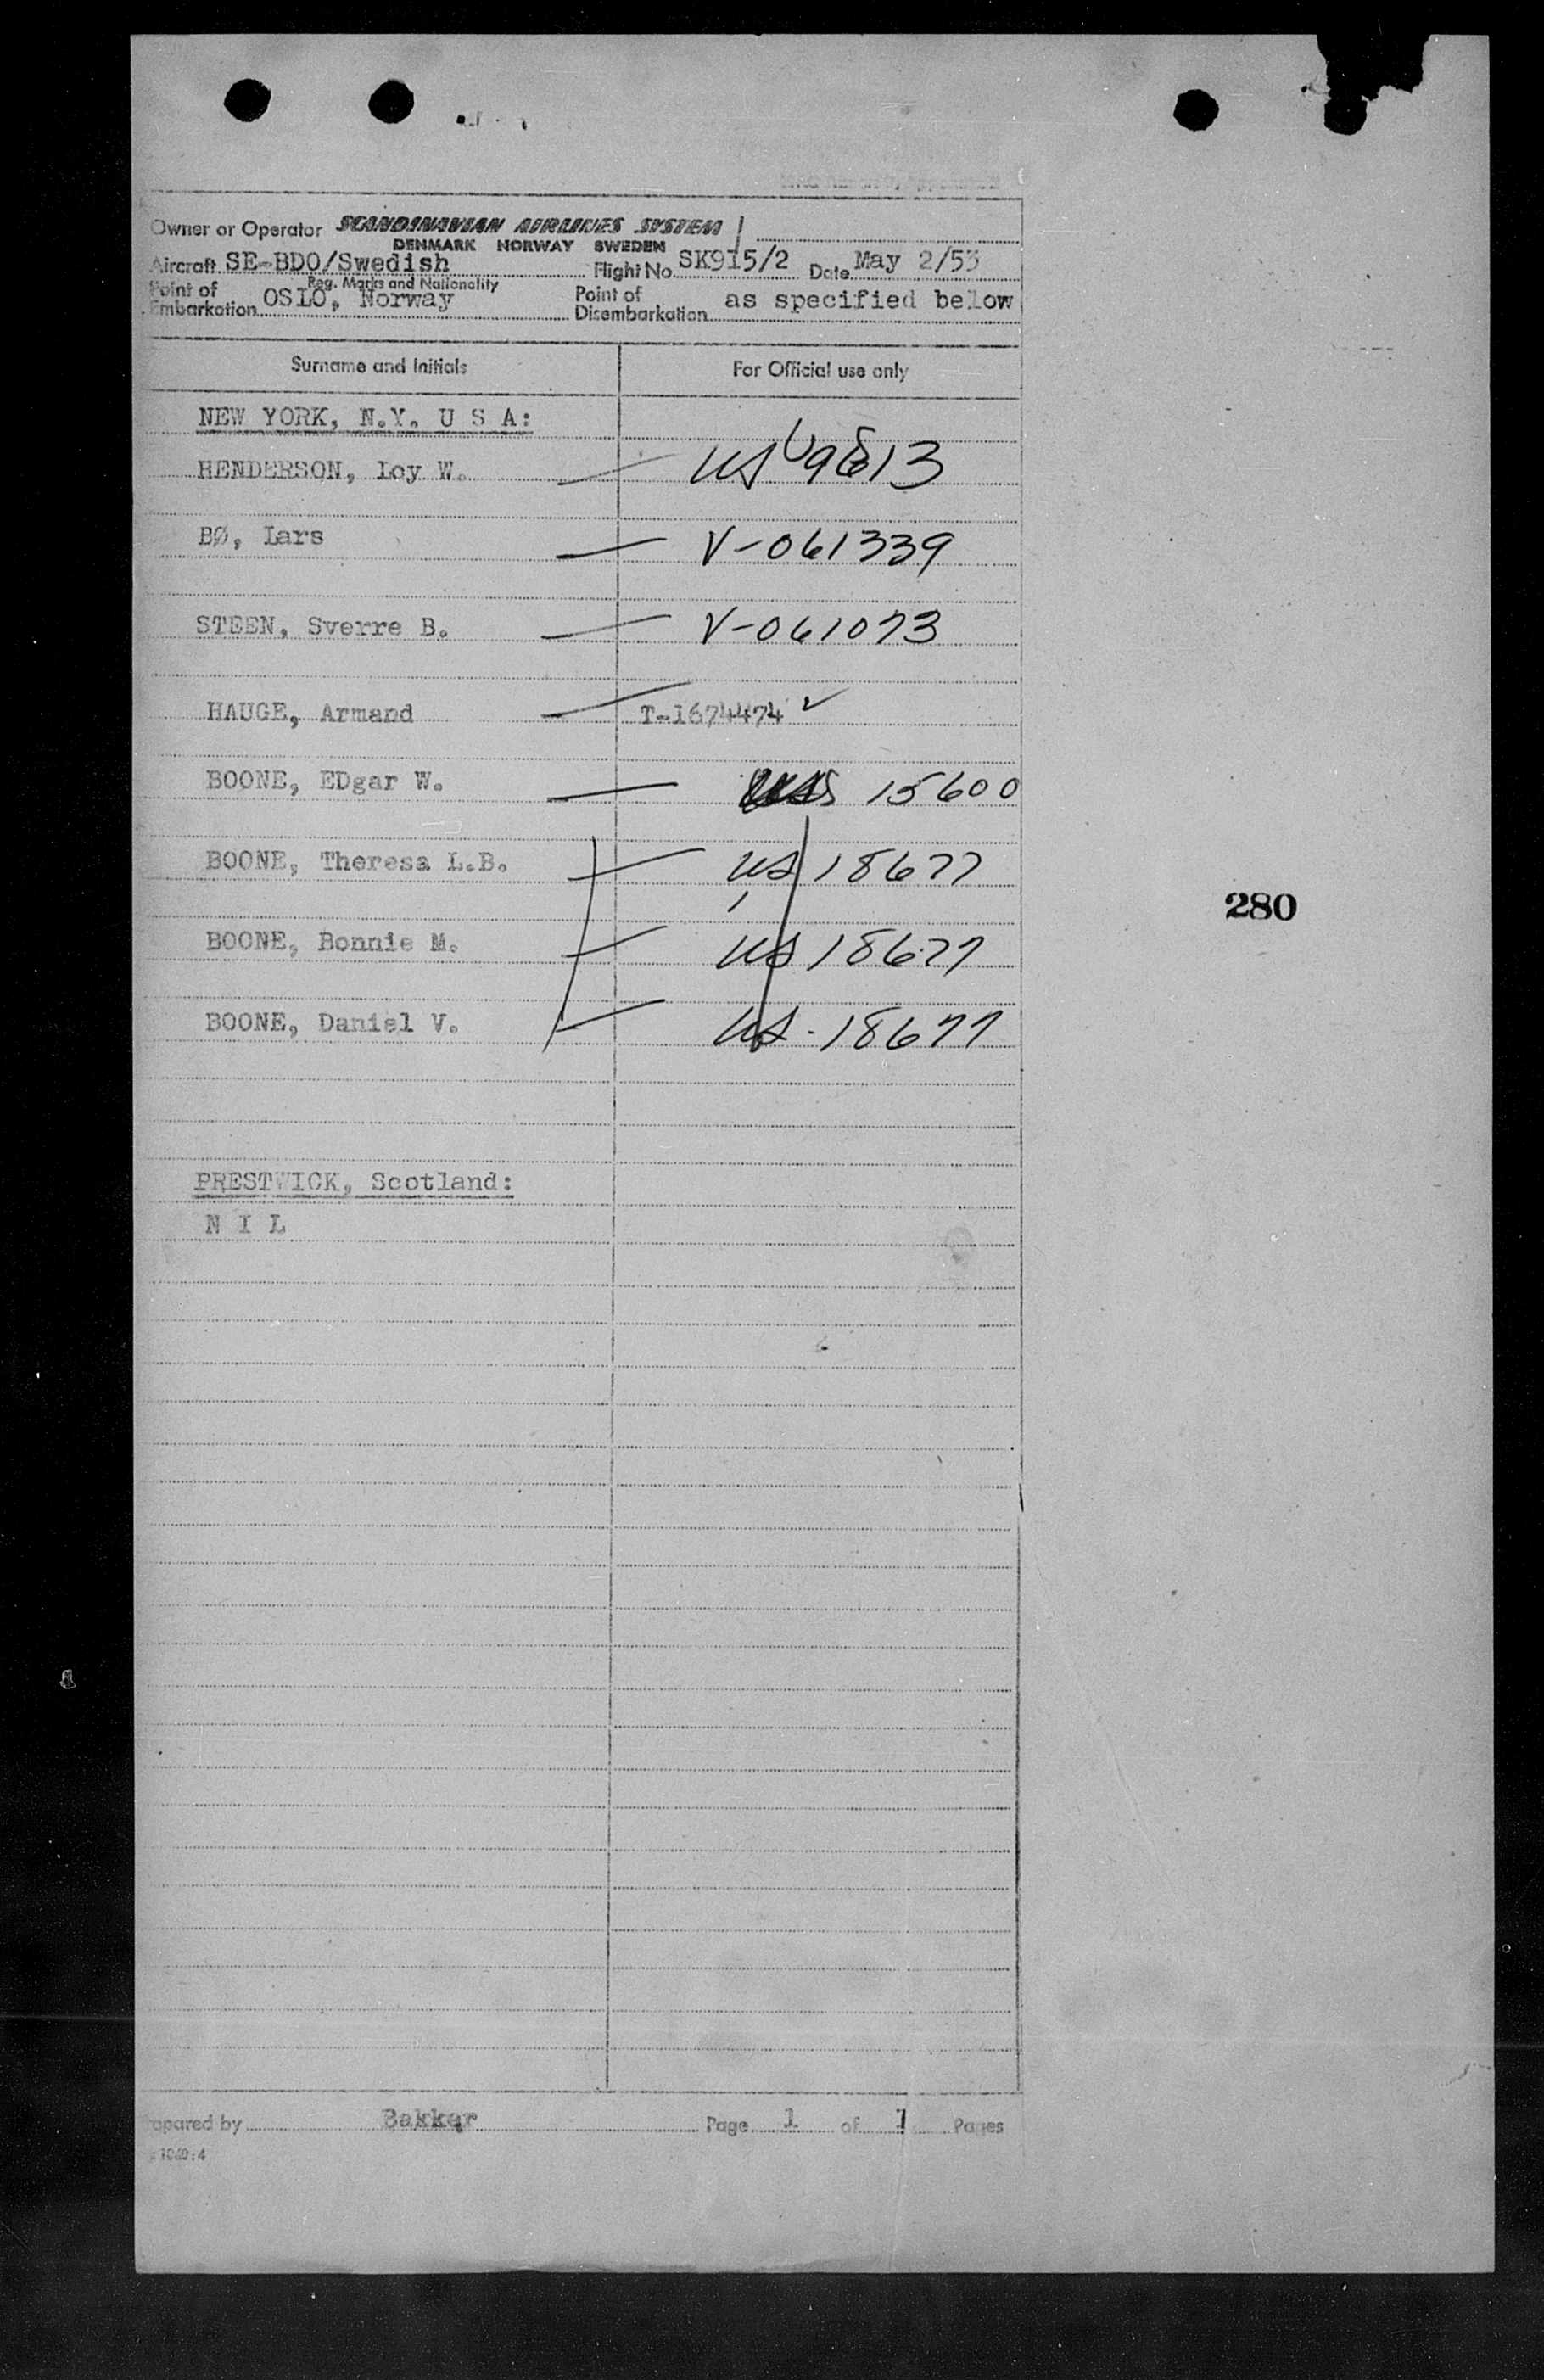 Owner or Operator SCANDINAVIAN AIRLINES SYSTEM
DENMARK NORWAY SWEDEN
Aircraft SE-BDO/Swedish Flight No. SK915/2 Date May 2/53
Reg. Marks and Nationality
Point of Embarkation OSLO, Norway Point of Disembarkation as specified below
Surname and Initials For Official use only
NEW YORK, N.Y. U S A:
HENDERSON, Loy W. US 9813
BØ, Lars V-061339
STEEN, Sverre B. V-061073
HAUGE, Armand T-1674474 ✓
BOONE, EDgar W. 15600
BOONE, Theresa L.B. US 18677
BOONE, Bonnie M. US 18677
280
BOONE, Daniel V. US-18677
PRESTWICK, Scotland:
N I L
epared by Bakker Page 1 of 1 Pages